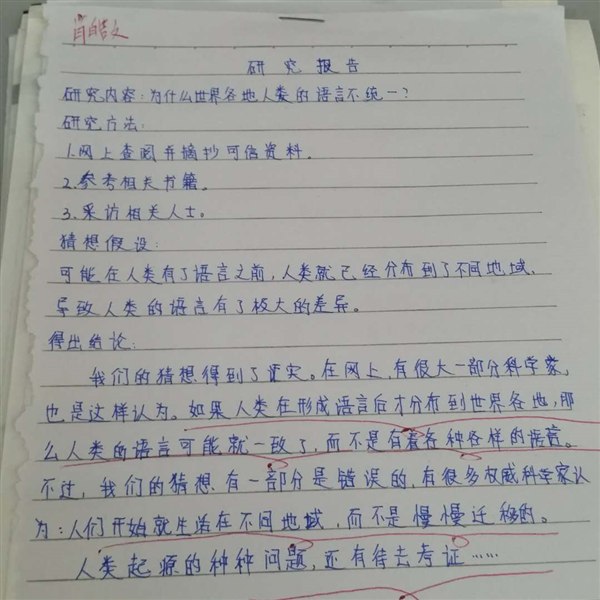 肖皓文
研究报告
研究内容:为什么世界各地人类的语言不统一?
研究方法:
1.网上查阅并摘抄可信资料。
2.参考相关书籍。
3.采访相关人士。
猜想假设:
可能在人类有了语言之前,人类就已经分布到了不同地域,
导致人类的语言有了极大的差异。
得出结论:
我们的猜想得到了证实。在网上,有很大一部分科学家,
也是这样认为。如果人类在形成语言后才分布到世界各地,那
么人类的语言可能就一致了,而不是有着各种各样的语言。
不过,我们的猜想有一部分是错误的,有很多权威科学家认
为:人们开始就生活在不同地域,而不是慢慢迁移的。
人类起源的种种问题,还有待去考证……